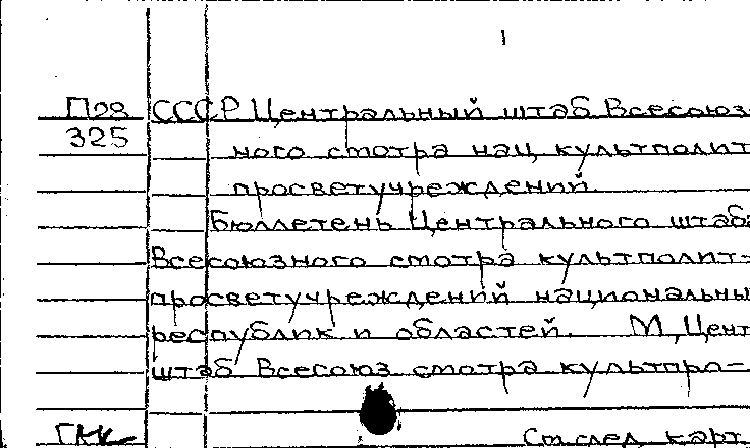 П28 СССР Центральный штаб Всесоюз-
325
ного смотра нац. культполит
просветучреждений.
Бюллетень Центрального штаба
Всесоюзного смотра культполит-
просветучреждений национальны
республик и областей. М., Цент
штаб Всесоюз смотра культпро-
См. след. карт.